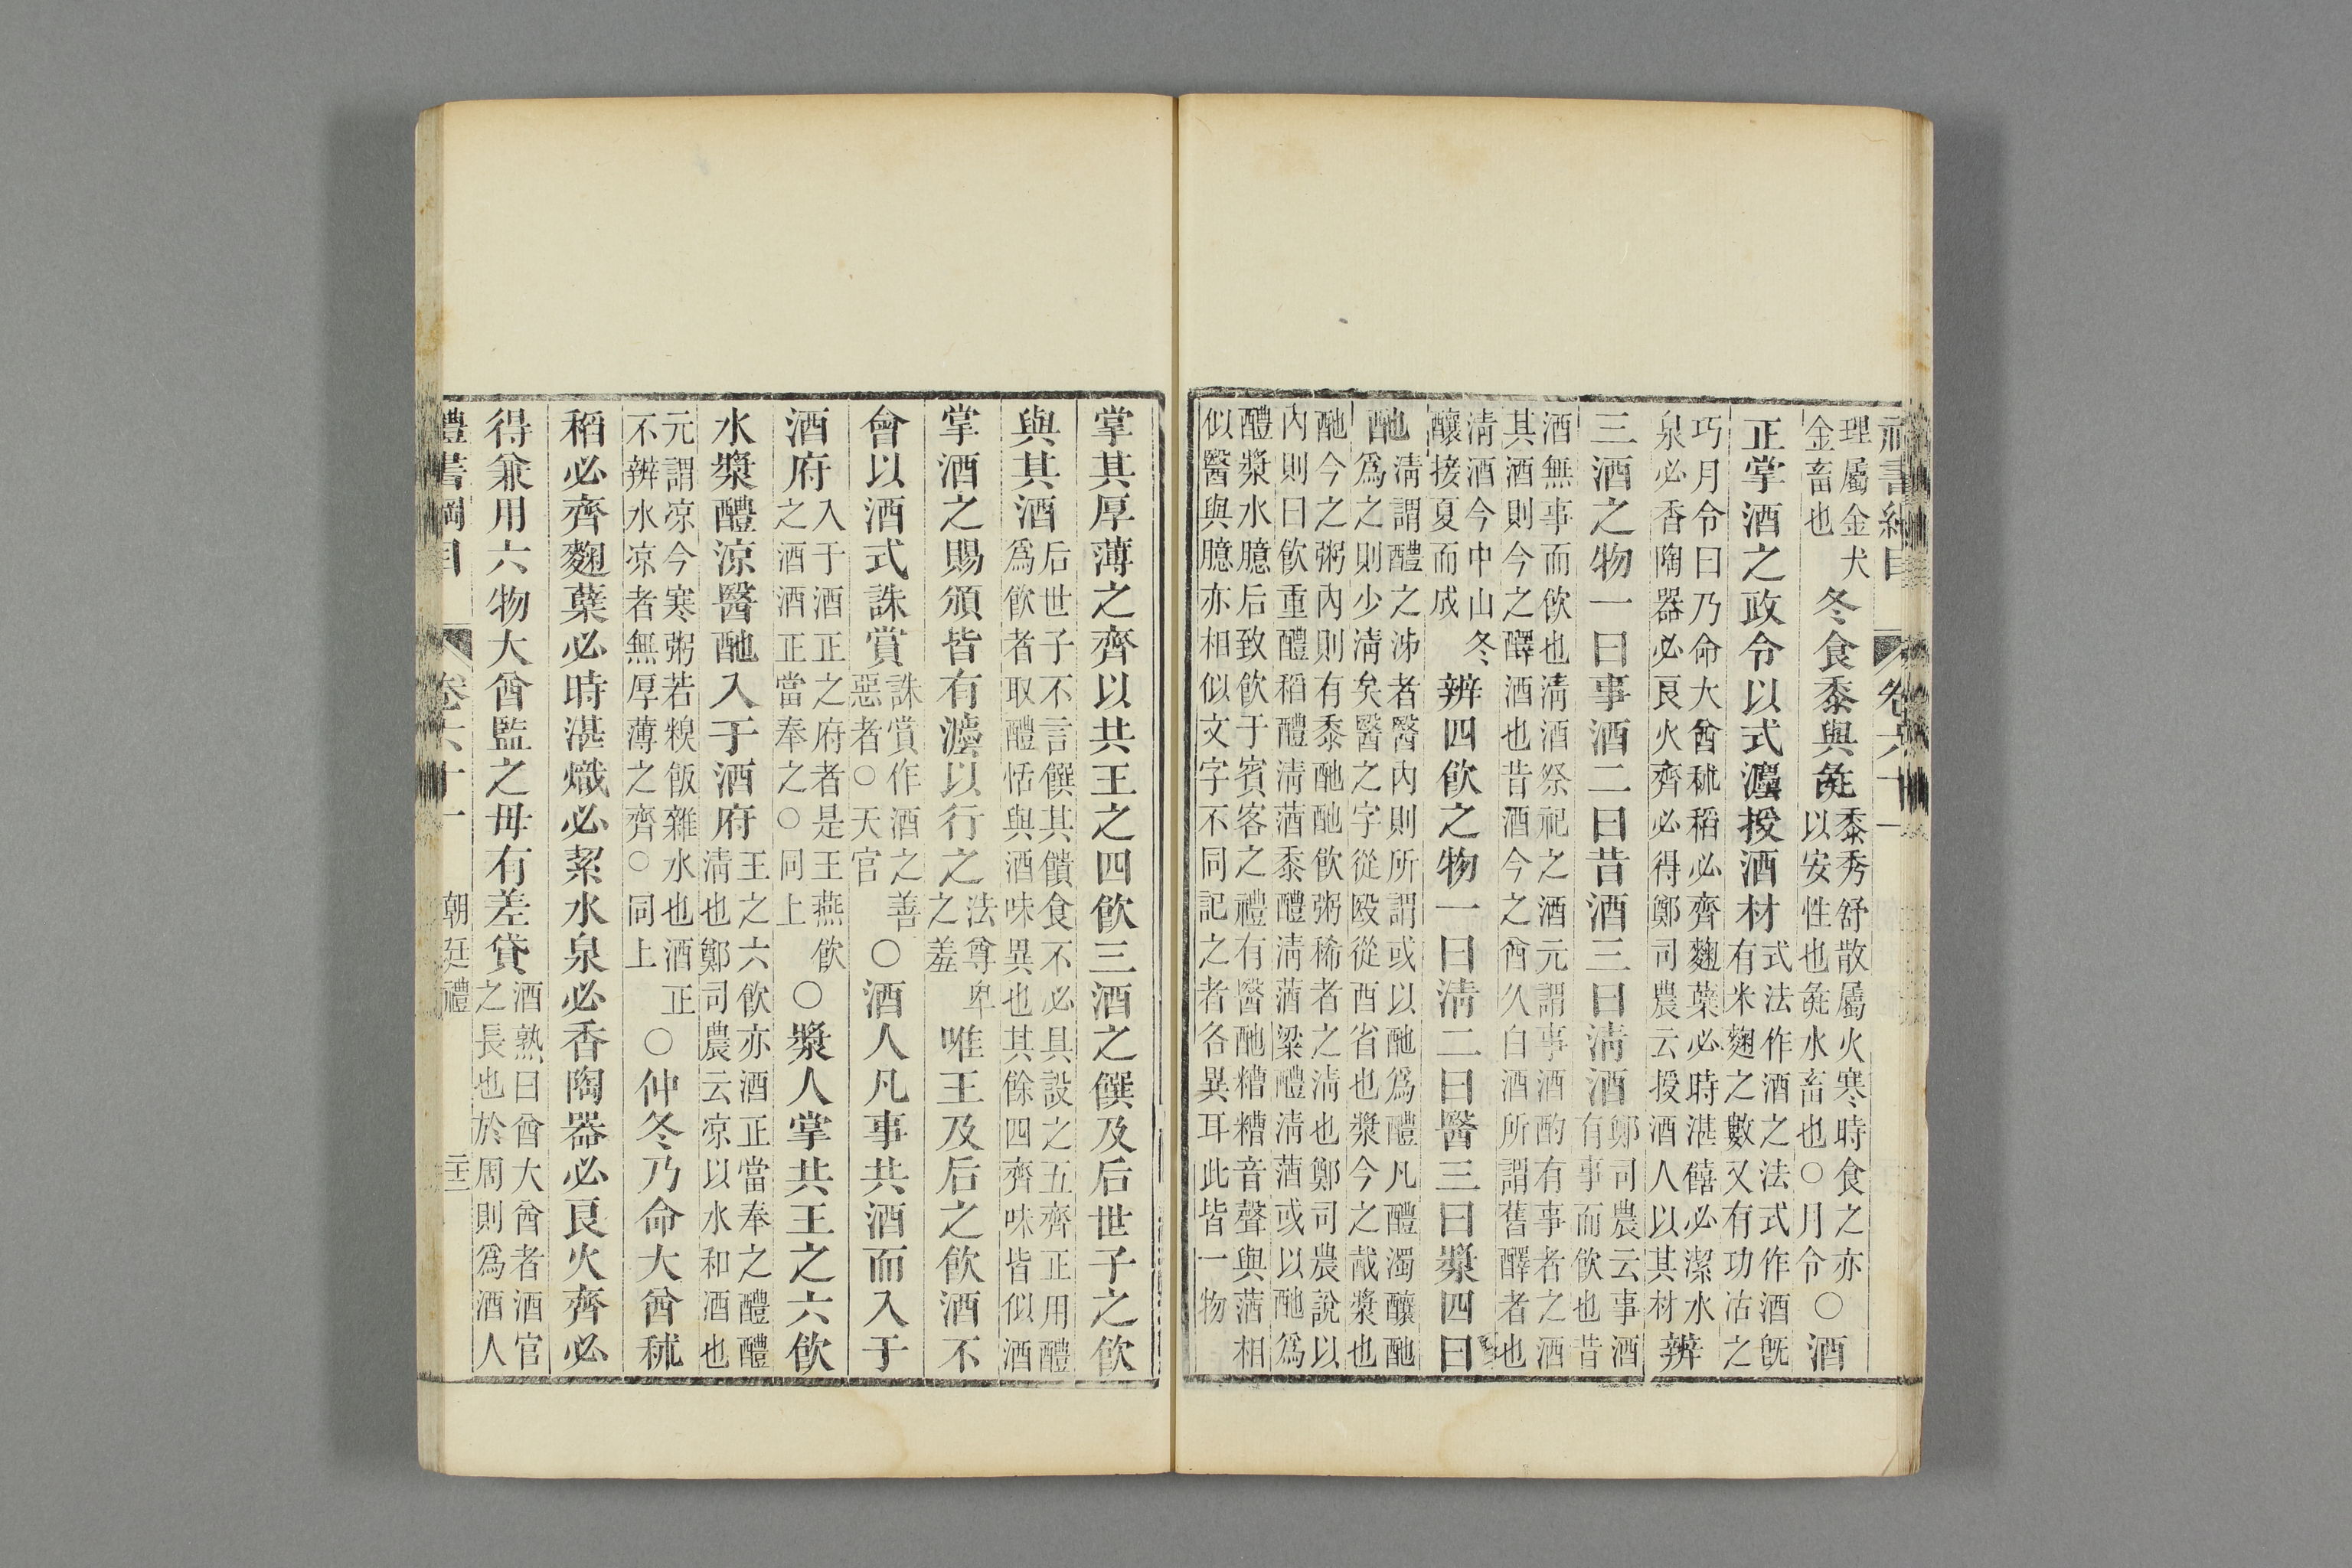 禮書綱目　卷六十一
理屬金犬
金畜也
冬食黍與彘
黍秀舒散屬火寒時食之亦
以安性也彘水畜也○月令
○酒
正掌酒之政令以式灋授酒材
式法作酒之法式作酒旣
有米麴之數又有功沽之
巧月令曰乃命大酋秫稻必齊麴蘖必時湛饎必潔水
泉必香陶器必良火齊必得鄭司農云授酒人以其材
辨
三酒之物一曰事酒二曰昔酒三曰淸酒
鄭司農云事酒
有事而飮也昔
酒無事而飮也淸酒祭祀之酒元謂事酒酌有事者之酒
其酒則今之醳酒也昔酒今之酋久白酒所謂舊醳者也
淸酒今中山冬
釀接夏而成
辨四飮之物一曰淸二曰醫三曰漿四曰
酏
淸謂醴之泲者醫內則所謂或以酏爲醴凡醴濁釀酏
爲之則少淸矣醫之字從殹從酉省也漿今之胾漿也
酏今之粥內則有黍酏酏飮粥稀者之淸也鄭司農說以
內則曰飮重醴稻醴淸蒏黍醴淸蒏粱醴淸蒏或以酏爲
醴漿水臆后致飮于賓客之禮有醫酏糟糟音聲與蒏相
似醫與臆亦相似文字不同記之者各異耳此皆一物
掌其厚薄之齊以共王之四飮三酒之饌及后世子之飮
與其酒
后世子不言饌其饋食不必具設之五齊正用醴
爲飮者取醴恬與酒味異也其餘四齊味皆似酒
掌酒之賜頒皆有灋以行之
法尊卑
之差
唯王及后之飮酒不
會以酒式誅賞
誅賞作酒之善
惡者○天官
○酒人凡事共酒而入于
酒府
入于酒正之府者是王燕飮
之酒酒正當奉之○同上
○漿人掌共王之六飮
水漿醴涼醫酏入于酒府
王之六飮亦酒正當奉之醴醴
淸也鄭司農云凉以水和酒也
元謂凉今寒粥若糗飯雜水也酒正
不辨水凉者無厚薄之齊○同上
○仲冬乃命大酋秫
稻必齊麴蘖必時湛熾必絜水泉必香陶器必良火齊必
得兼用六物大酋監之毋有差貸
酒熟曰酋大酋者酒官
之長也於周則爲酒人
禮書綱目　卷六十一　朝廷禮　二十二